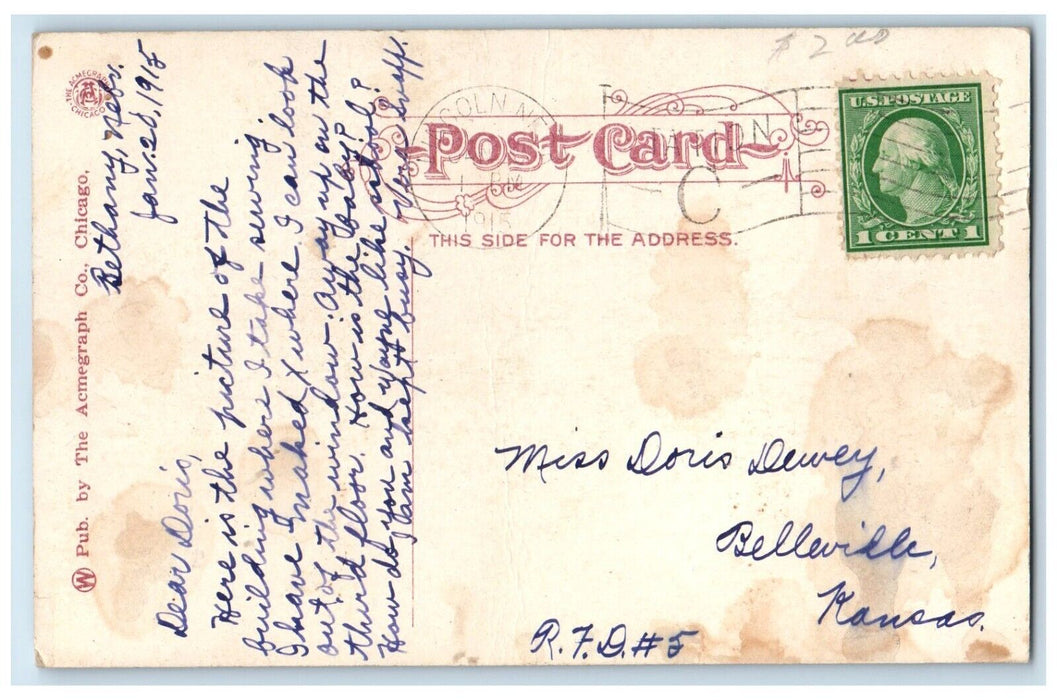 $ 2 00
THE ACMEGRAPH CO. CHICAGO
Pub. by The Acmegraph Co., Chicago,
Bethany, Nebr.
Jan. 28, 1915
Dear Doris,
Here is the picture of the
building where I take sewing.
I have marked X where I can look
out of the window. Away up on the
third floor. How is the baby?
How do you and Wayne like school?
I am kept busy. Vera Swaff.
Post Card
THIS SIDE FOR THE ADDRESS.
COLN
1915
C
U.S. POSTAGE
1 CENT 1
Miss Doris Dewey,
Belleville,
Kansas.
R.F.D. #5